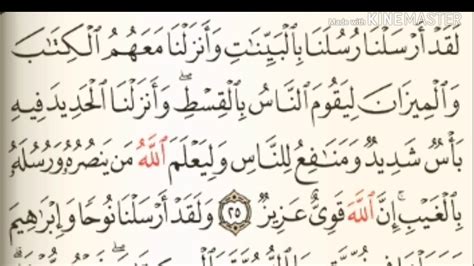 Made with KINEMASTER
لَقَدْ أَرْسَلْنَا رُسُلَنَا بِالْبَيِّنَٰتِ وَأَنزَلْنَا مَعَهُمُ الْكِتَٰبَ
وَالْمِيزَانَ لِيَقُومَ النَّاسُ بِالْقِسْطِ ۖ وَأَنزَلْنَا الْحَدِيدَ فِيهِ
بَأْسٌ شَدِيدٌ وَمَنَٰفِعُ لِلنَّاسِ وَلِيَعْلَمَ اللَّهُ مَن يَنصُرُهُۥ وَرُسُلَهُۥ
بِالْغَيْبِ ۚ إِنَّ اللَّهَ قَوِيٌّ عَزِيزٌ ٢٥ وَلَقَدْ أَرْسَلْنَا نُوحًا وَإِبْرَٰهِيمَ